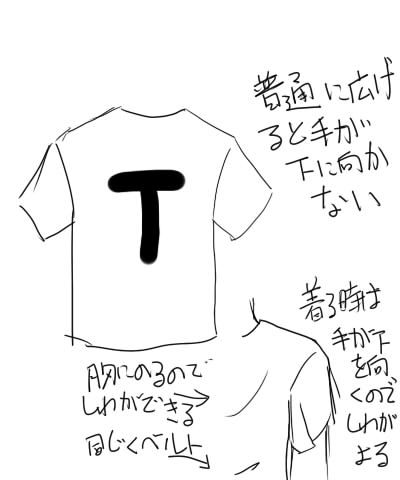 普通に広げ
ると手が
下に向か
ない
T
着る時は
手が下
を向
くので
しわが
よる
胸にのるので
しわができる
同じくベルト